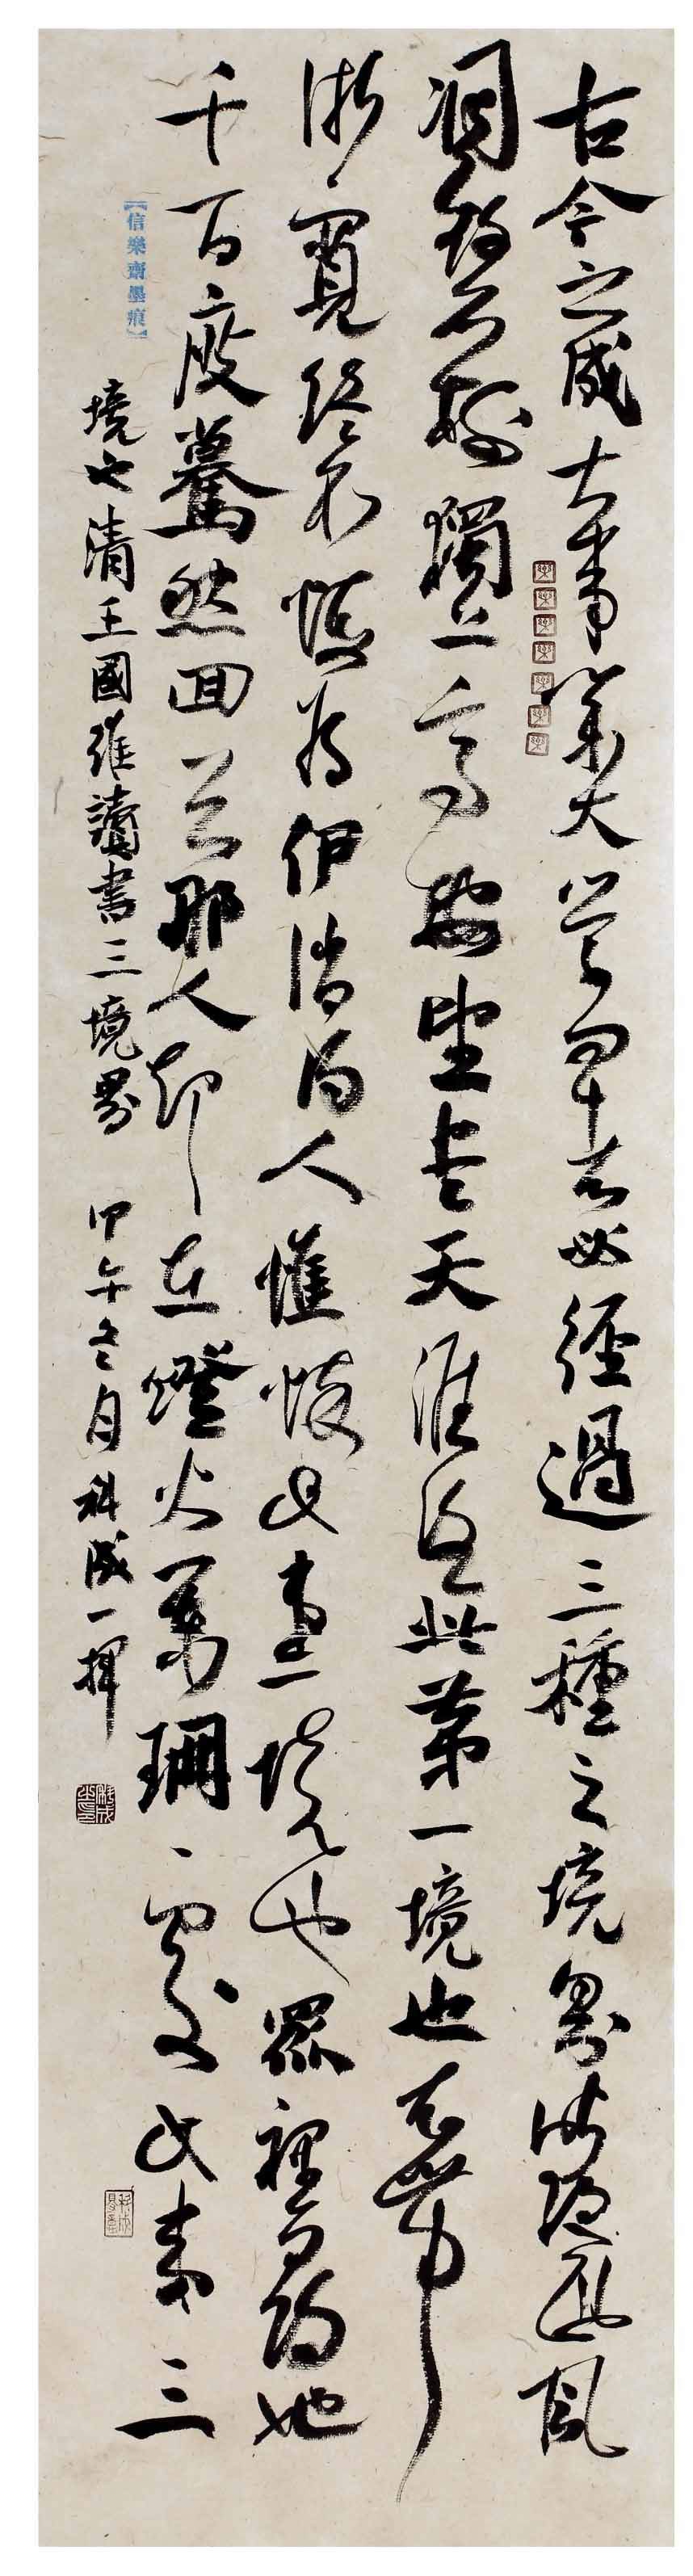 古今之成大事業大學問者必經過三種之境界昨夜西風
凋碧樹獨上高樓望盡天涯路此第一境也衣帶
漸寬終不悔為伊消得人憔悴此第二境也眾裡尋她
千百度驀然回首那人卻在燈火珊處此第三
境也清王國維讀書三境界 甲午冬月科成一揮
【信樂齋墨痕】